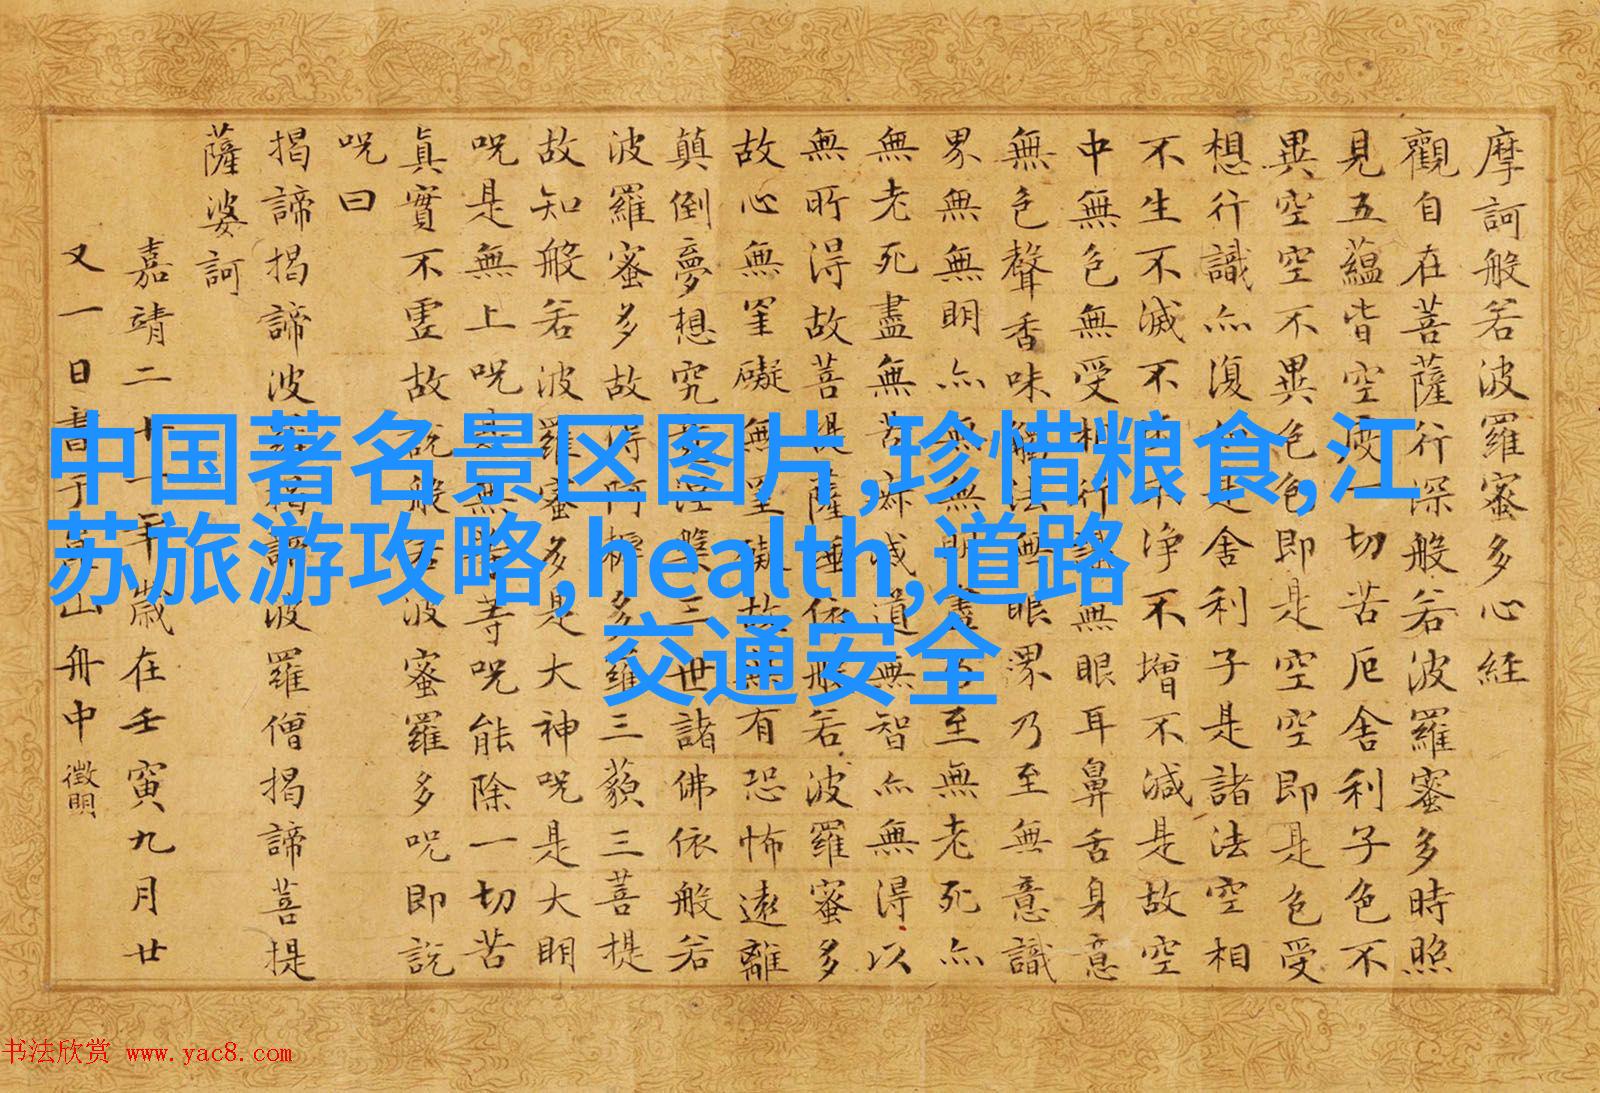 摩訶般若波羅蜜多心經
觀自在菩薩行深般若波羅蜜多時照
見五蘊皆空度一切苦厄舍利子色不
異空空不異色色即是空空即是色受
想行識亦復如是舍利子是諸法空相
不生不滅不垢不淨不增不減是故空
中無色無受想行識無眼耳鼻舌身意
無色聲香味觸法無眼界乃至無意識
界無無明亦無無明盡乃至無老死亦
無老死盡無苦滅道無智亦無得以
無所得故菩提薩埵依般若波羅蜜多
故心無罣礙無罣礙故無有恐怖遠離
顛倒夢想究竟涅槃三世諸佛依般若
波羅蜜多故得阿耨多羅三藐三菩提
故知般若波羅蜜多是大神咒是大明
咒是無上咒是無等等咒能除一切苦
真實不虛故說般若波蜜羅多咒即說
咒曰
揭諦揭諦波羅揭諦波羅僧揭諦菩提
薩婆訶
嘉靖二十一年歲在壬寅九月廿
又一日書于山舟中 徵明
中国著名景区图片,珍惜粮食,江
苏旅游攻略,health,道路
交通安全
书法欣赏 www.yac8.com